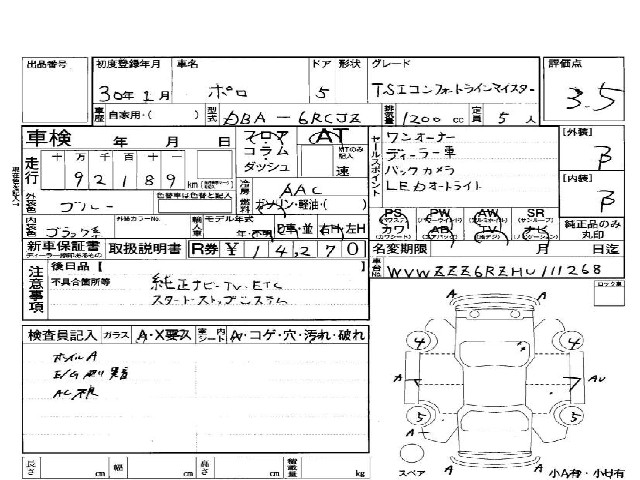 出品番号 初度登録年月 車名 ドア 形状 グレード 評価点
30年1月 ポロ 5 TSIコンフォートラインマイスター 3.5
車歴 自家用・( ) 型式 DBA-6RCJZ 排気量 1200 cc 定員 5 人
車検 年 月 日 フロア AT
コラム
ダッシュ 速
走行 十 万 千 百 十 一
92189 km
冷房 AAC
外装色 ブルー 色替車は色替と記入 燃料 ガソリン・軽油・( )
内装色 ブラック系 外装カラーNo. 輸入車 モデル年式 年・不明 D車・並 右H・左H
セールスポイント
ワンオーナー
ディーラー車
バックカメラ
LEDオートライト
PS PW AW SR
カワ AB TV ナビ
[外装]
B
[内装]
B
純正品のみ
丸印
新車保証書 取扱説明書 R券 ¥ 14,270 名変期限 月 日迄
ディーラー捺印あるもの
車台No. WVWZZZ6RZHU111268
注意事項 後日品【 】
不具合箇所等 純正ナビ・TV、ETC
スタートストップシステム
ロック車
検査員記入 ガラス A・X要ス 室内シート A・コゲ・穴・汚れ・破れ
ホイルA
A A
4 4
A 7 AU
5 5
A A
長さ cm 幅 cm 高さ cm 積載量 kg
スペア 小A有・小U有